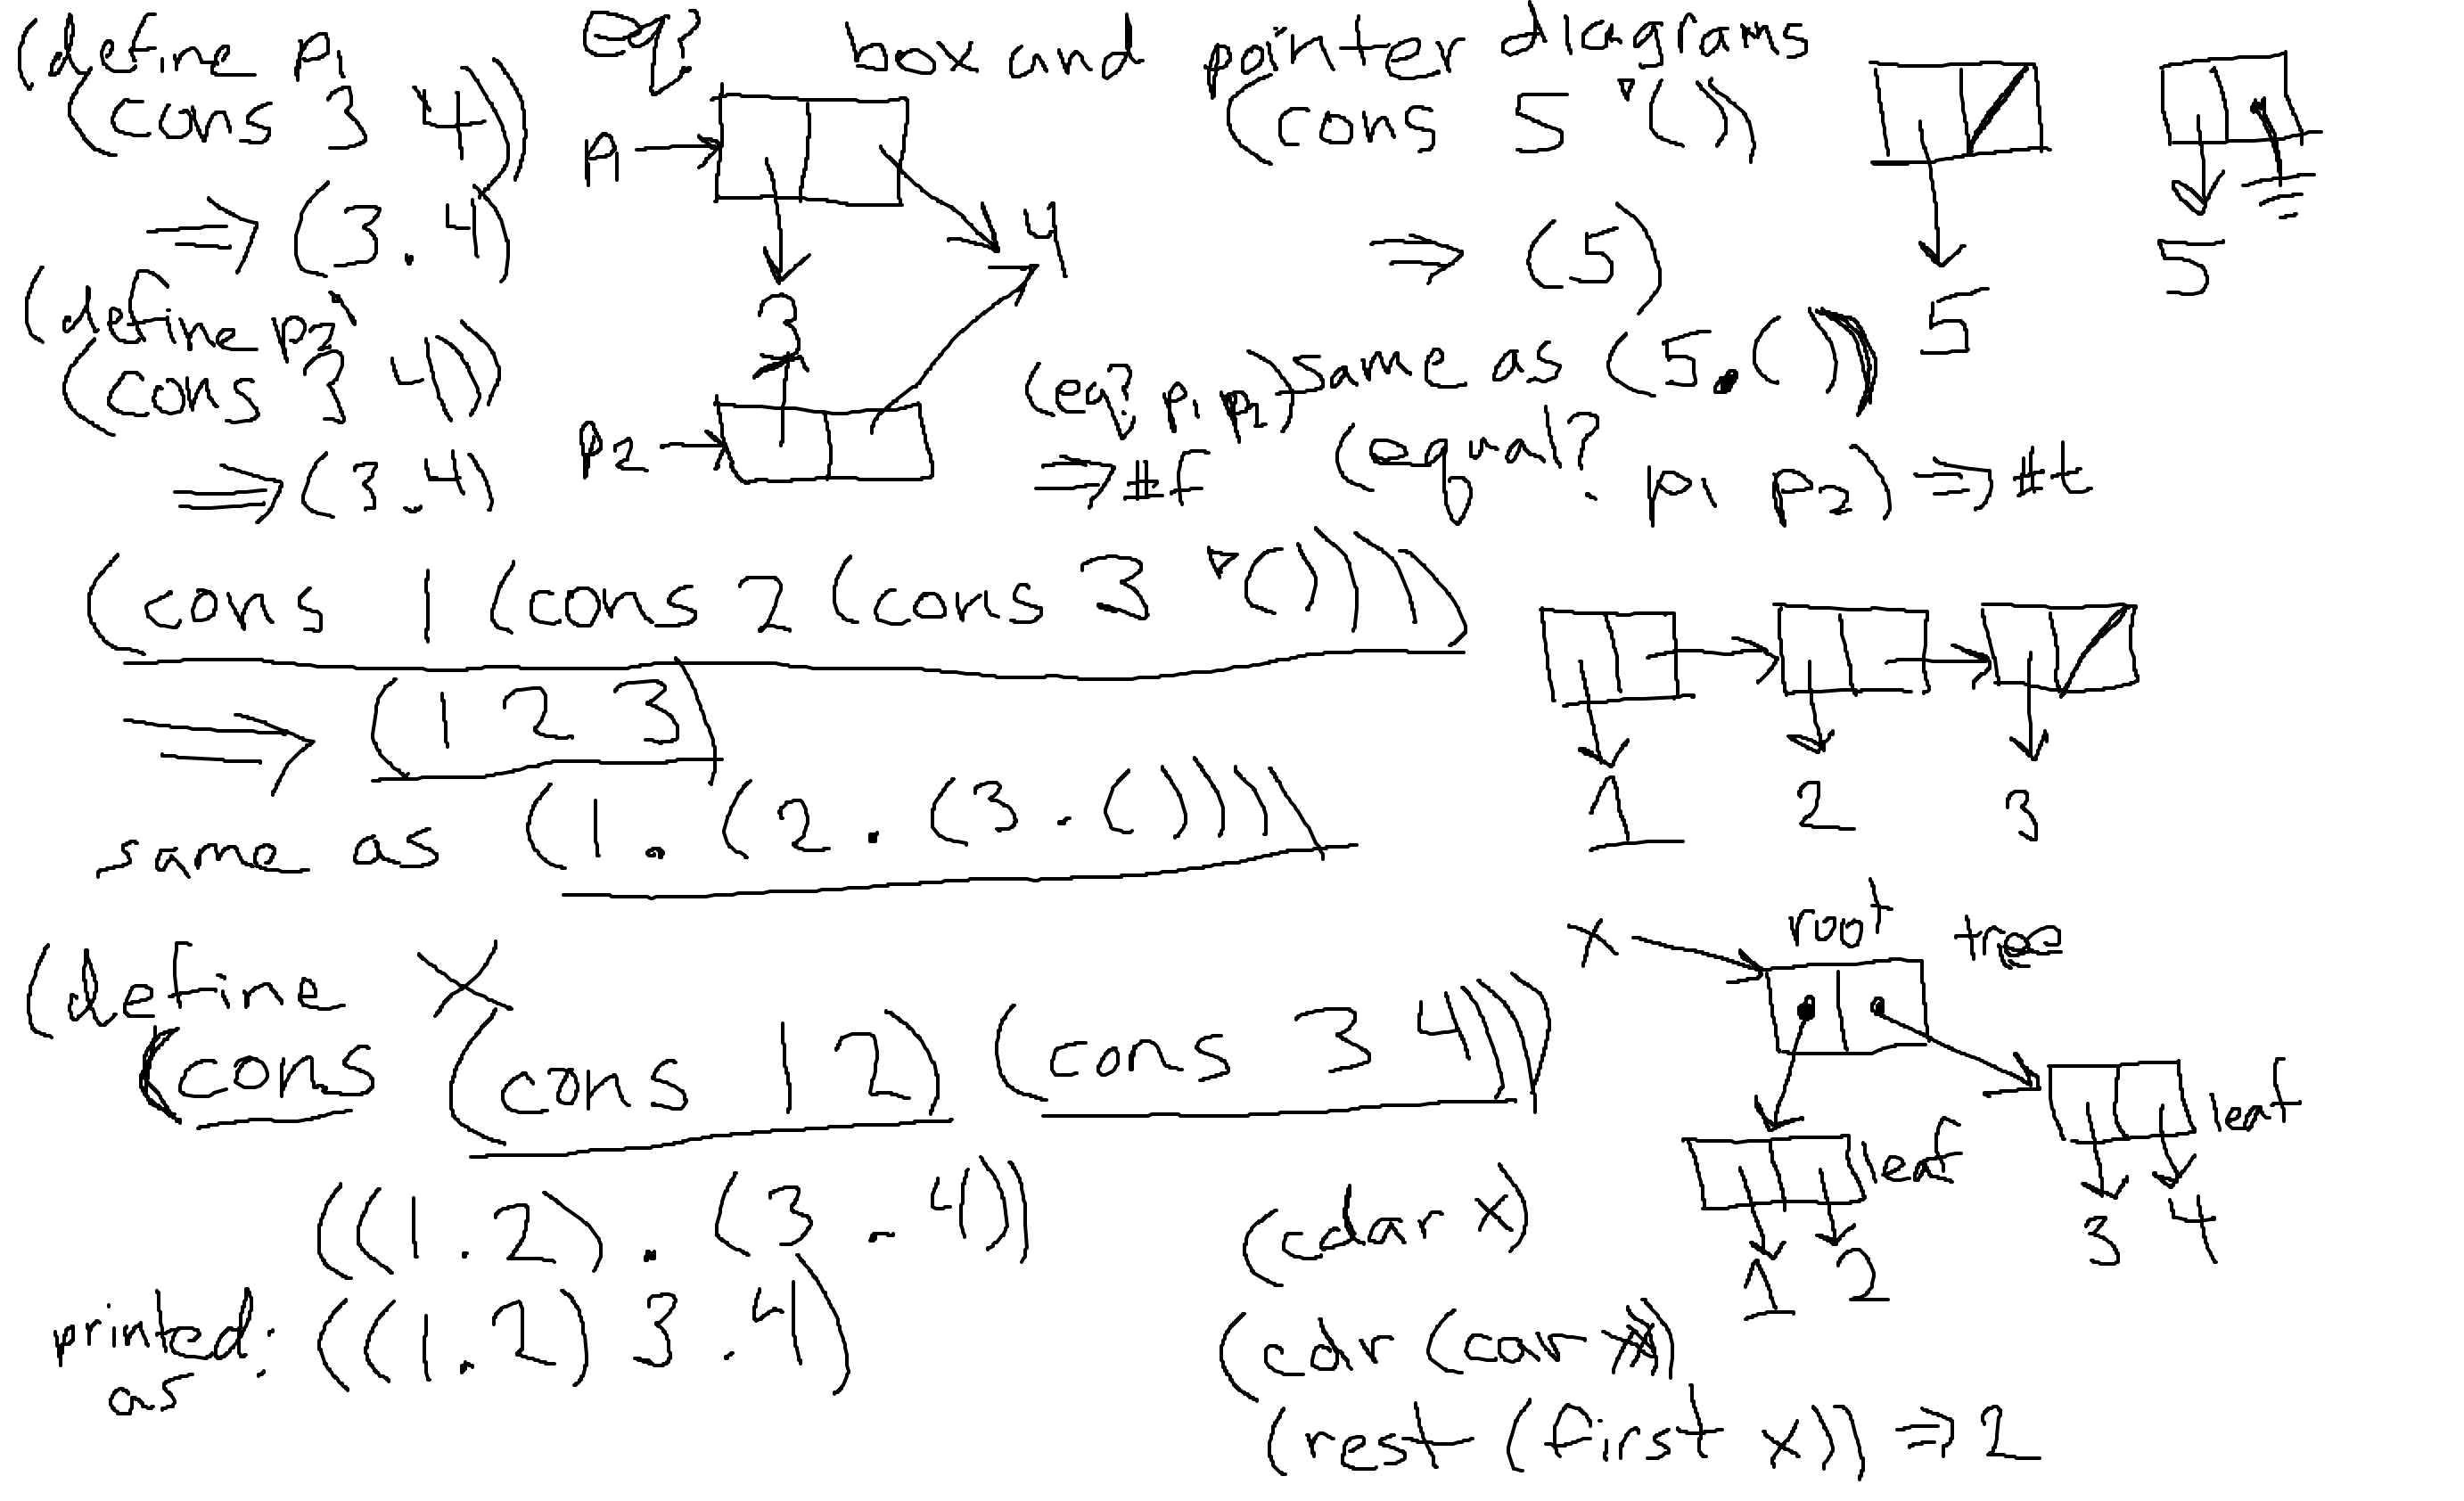 (define p1
(cons 3 4))
⇒ (3 . 4)
(define p2
(cons 3 4))
⇒ (3 . 4)
eq?
box and pointer diagrams
p1
3
4
p2
(cons 5 '())
⇒ (5)
same as (5 . ())
5
5
(eq? p1 p2)
⇒ #f
(equal? p1 p2) ⇒ #t
(cons 1 (cons 2 (cons 3 '())))
⇒ (1 2 3)
same as (1 . (2 . (3 . ())))
1 2 3
(define x
(cons (cons 1 2) (cons 3 4)))
((1 . 2) . (3 . 4))
printed: ((1 . 2) 3 . 4)
as
x root tree
leaf
leaf
1 2
3 4
(cdar x)
(cdr (car x))
(rest (first x)) ⇒ 2